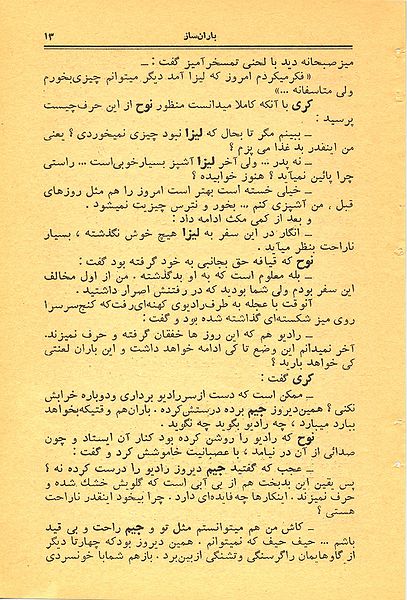 باران‌ساز
۱۳
میز صبحانه دید با لحنی تمسخرآمیز گفت : ــ
« فکرمیکردم امروز که لیزا آمد دیگر میتوانم چیزی‌بخورم
ولی متاسفانه ...»
کری با آنکه کاملا میدانست منظور نوح از این حرف‌چیست
پرسید :
ــ ببینم مگر تا بحال که لیزا نبود چیزی نمیخوردی ؟ یعنی
من اینقدر بد غذا می پزم ؟
ــ نه پدر ... ولی آخر لیزا آشپز بسیارخوبی‌است ... راستی
چرا پائین نمیآید ؟ هنوز خوابیده ؟
ــ خیلی خسته است بهتر است امروز را هم مثل روزهای
قبل ، من آشپزی کنم ... بخور و نترس چیزیت نمیشود .
و بعد از کمی مکث ادامه داد :
ــ انگار در این سفر به لیزا هیچ خوش نگذشته ، بسیار
ناراحت بنظر میآید .
نوح که قیافه حق بجانبی به خود گرفته بود گفت :
ــ بله معلوم است که به او بدگذشته . من از اول مخالف
این سفر بودم ولی شما بودید که در رفتنش اصرار داشتید .
آنوقت با عجله به طرف‌رادیوی کهنه‌ای‌رفت‌که کنج‌سرسرا
روی میز شکسته‌ای گذاشته شده بود و گفت :
ــ رادیو هم که این روز ها خفقان گرفته و حرف نمیزند.
آخر نمیدانم این وضع تا کی ادامه خواهد داشت و این باران لعنتی
کی خواهد بارید ؟
کری گفت :
ــ ممکن است که دست ازسررادیو برداری ودوباره خرابش
نکنی ؟ همین‌دیروز جیم برده درستش‌کرده . باران‌هم وقتیکه‌بخواهد
ببارد میبارد ، چه رادیو بگوید چه نگوید .
نوح که رادیو را روشن کرده بود کنار آن ایستاد و چون
صدائی از آن در نیامد ، با عصبانیت خاموشش کرد و گفت :
ــ عجب که گفتید جیم دیروز رادیو را درست کرده نه ؟
پس یقین این بدبخت هم از بی آبی است که گلویش خشك شده و
حرف نمیزند . اینکارها چه‌فایده‌ای دارد . چرا بیخود اینقدر ناراحت
هستی ؟
ــ کاش من هم میتوانستم مثل تو و جیم راحت و بی قید
باشم ... حیف حیف که نمیتوانم . همین دیروز بودکه چهارتا دیگر
از گاوهایمان راگرسنگی وتشنگی ازبین‌برد . بازهم شمابا خونسردی